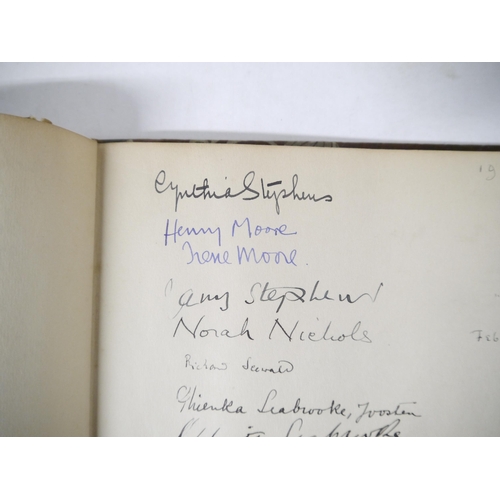 19
Cynthia Stephens
Henry Moore
Irene Moore.
Stephens
Norah Nichols
Richard Seewald
Seabrooke, Joosten
Seabrooke